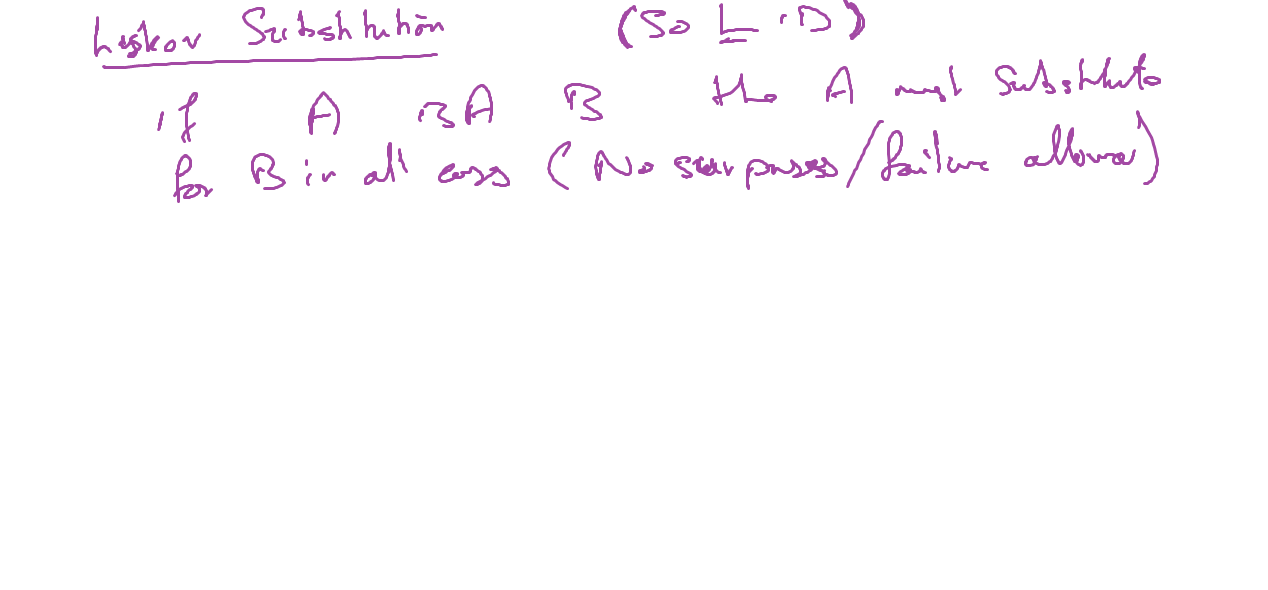 Liskov Substitution (SOLID)
if A is A B the A must substitute
for B in all cases (No surprises/failure allowed)